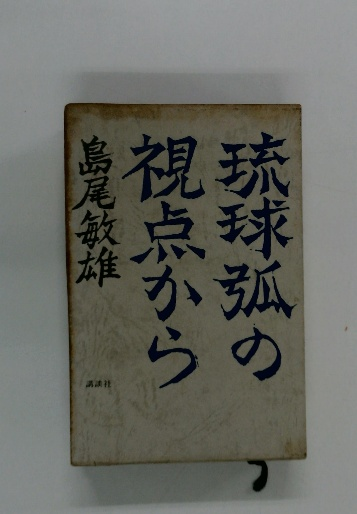 琉球弧の
視点から
島尾敏雄
講談社